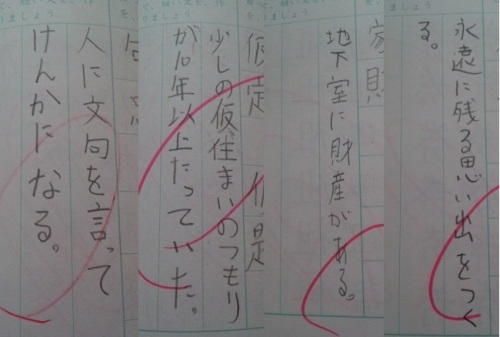 永遠に残る思い出をつく
る。
家財
地下室に財産がある。
仮定
少しの仮住まいのつもり
が10年以上たっていた。
人に文句を言って
けんかになる。